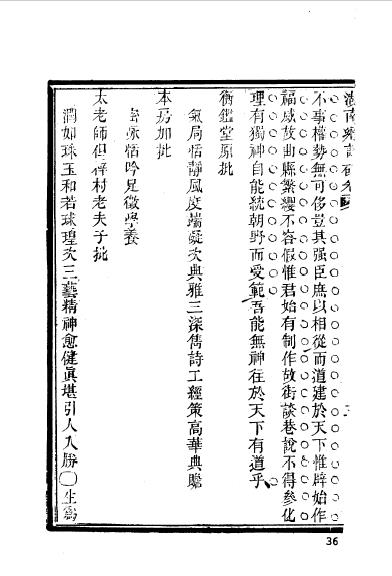 不事權勢無可侈豈其强臣庶以相從而道建於天下惟辟始作
福威故曲縣繁纓不容假惟君始有制作故街談巷說不得參化
理有獨神自能統朝野而受範吾能無神往於天下有道乎
衡鑑堂原批
氣局恬靜風度端凝次典雅三深雋詩工經策高華典贍
本房加批
密詠恬吟足徵學養
太老師但穉村老夫子批
潤如珠玉和若球瑝次三藝精神愈健眞堪引人入勝〇生爲
36